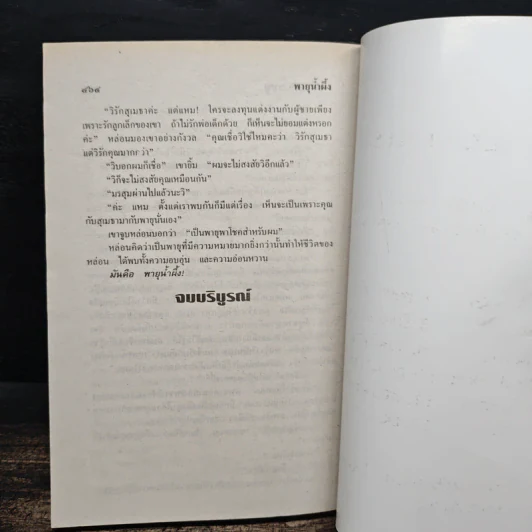 ๔๖๔ พายุน้ำผึ้ง
“วิรักสุเมธาค่ะ แต่แหม! ใครจะลงทุนแต่งงานกับผู้ชายเพียง
เพราะรักลูกเล็กของเขา ถ้าไม่รักพ่อเด็กด้วย ก็เห็นจะไม่ยอมแต่งหรอก
ค่ะ” หล่อนมองเขาอย่างกังวล “คุณเชื่อวิใช่ไหมคะว่า วิรักสุเมธา
แต่วิรักคุณมากกว่า”
“วิบอกผมก็เชื่อ” เขายิ้ม “ผมจะไม่สงสัยวิอีกแล้ว”
“วิก็จะไม่สงสัยคุณเหมือนกัน”
“มรสุมผ่านไปแล้วนะวิ”
“ค่ะ แหม ตั้งแต่เราพบกันก็มีแต่เรื่อง เห็นจะเป็นเพราะคุณ
กับสุเมธามากับพายุนั่นเอง”
เขาจูบหล่อนบอกว่า “เป็นพายุพาโชคสำหรับผม”
หล่อนคิดว่าเป็นพายุที่มีความหมายมากยิ่งกว่านั้นทำให้ชีวิตของ
หล่อน ได้พบทั้งความอบอุ่น และความอ่อนหวาน
มันคือ พายุน้ำผึ้ง!
จบบริบูรณ์